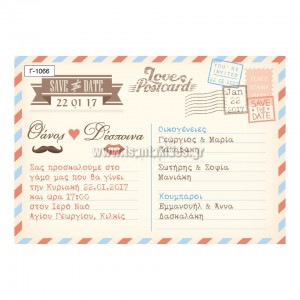 Γ-1066
SAVE THE DATE
22 01 17
Love Postcard
YOU'RE INVITED
Jan
22
2017
SAVE THE DATE
Θάνος Δέσποινα
Σας προσκαλούμε στο
γάμο μας που θα γίνει
την Κυριακή 22.01.2017
και ώρα 17:00
στον Ιερό Ναό
Αγίου Γεωργίου, Κιλκίς
Οικογένειες
Γεώργιος & Μαρία
Σωτήρης & Σοφία
Μανιάκη
Κουμπάροι
Εμμανουήλ & Άννα
Δασκαλάκη